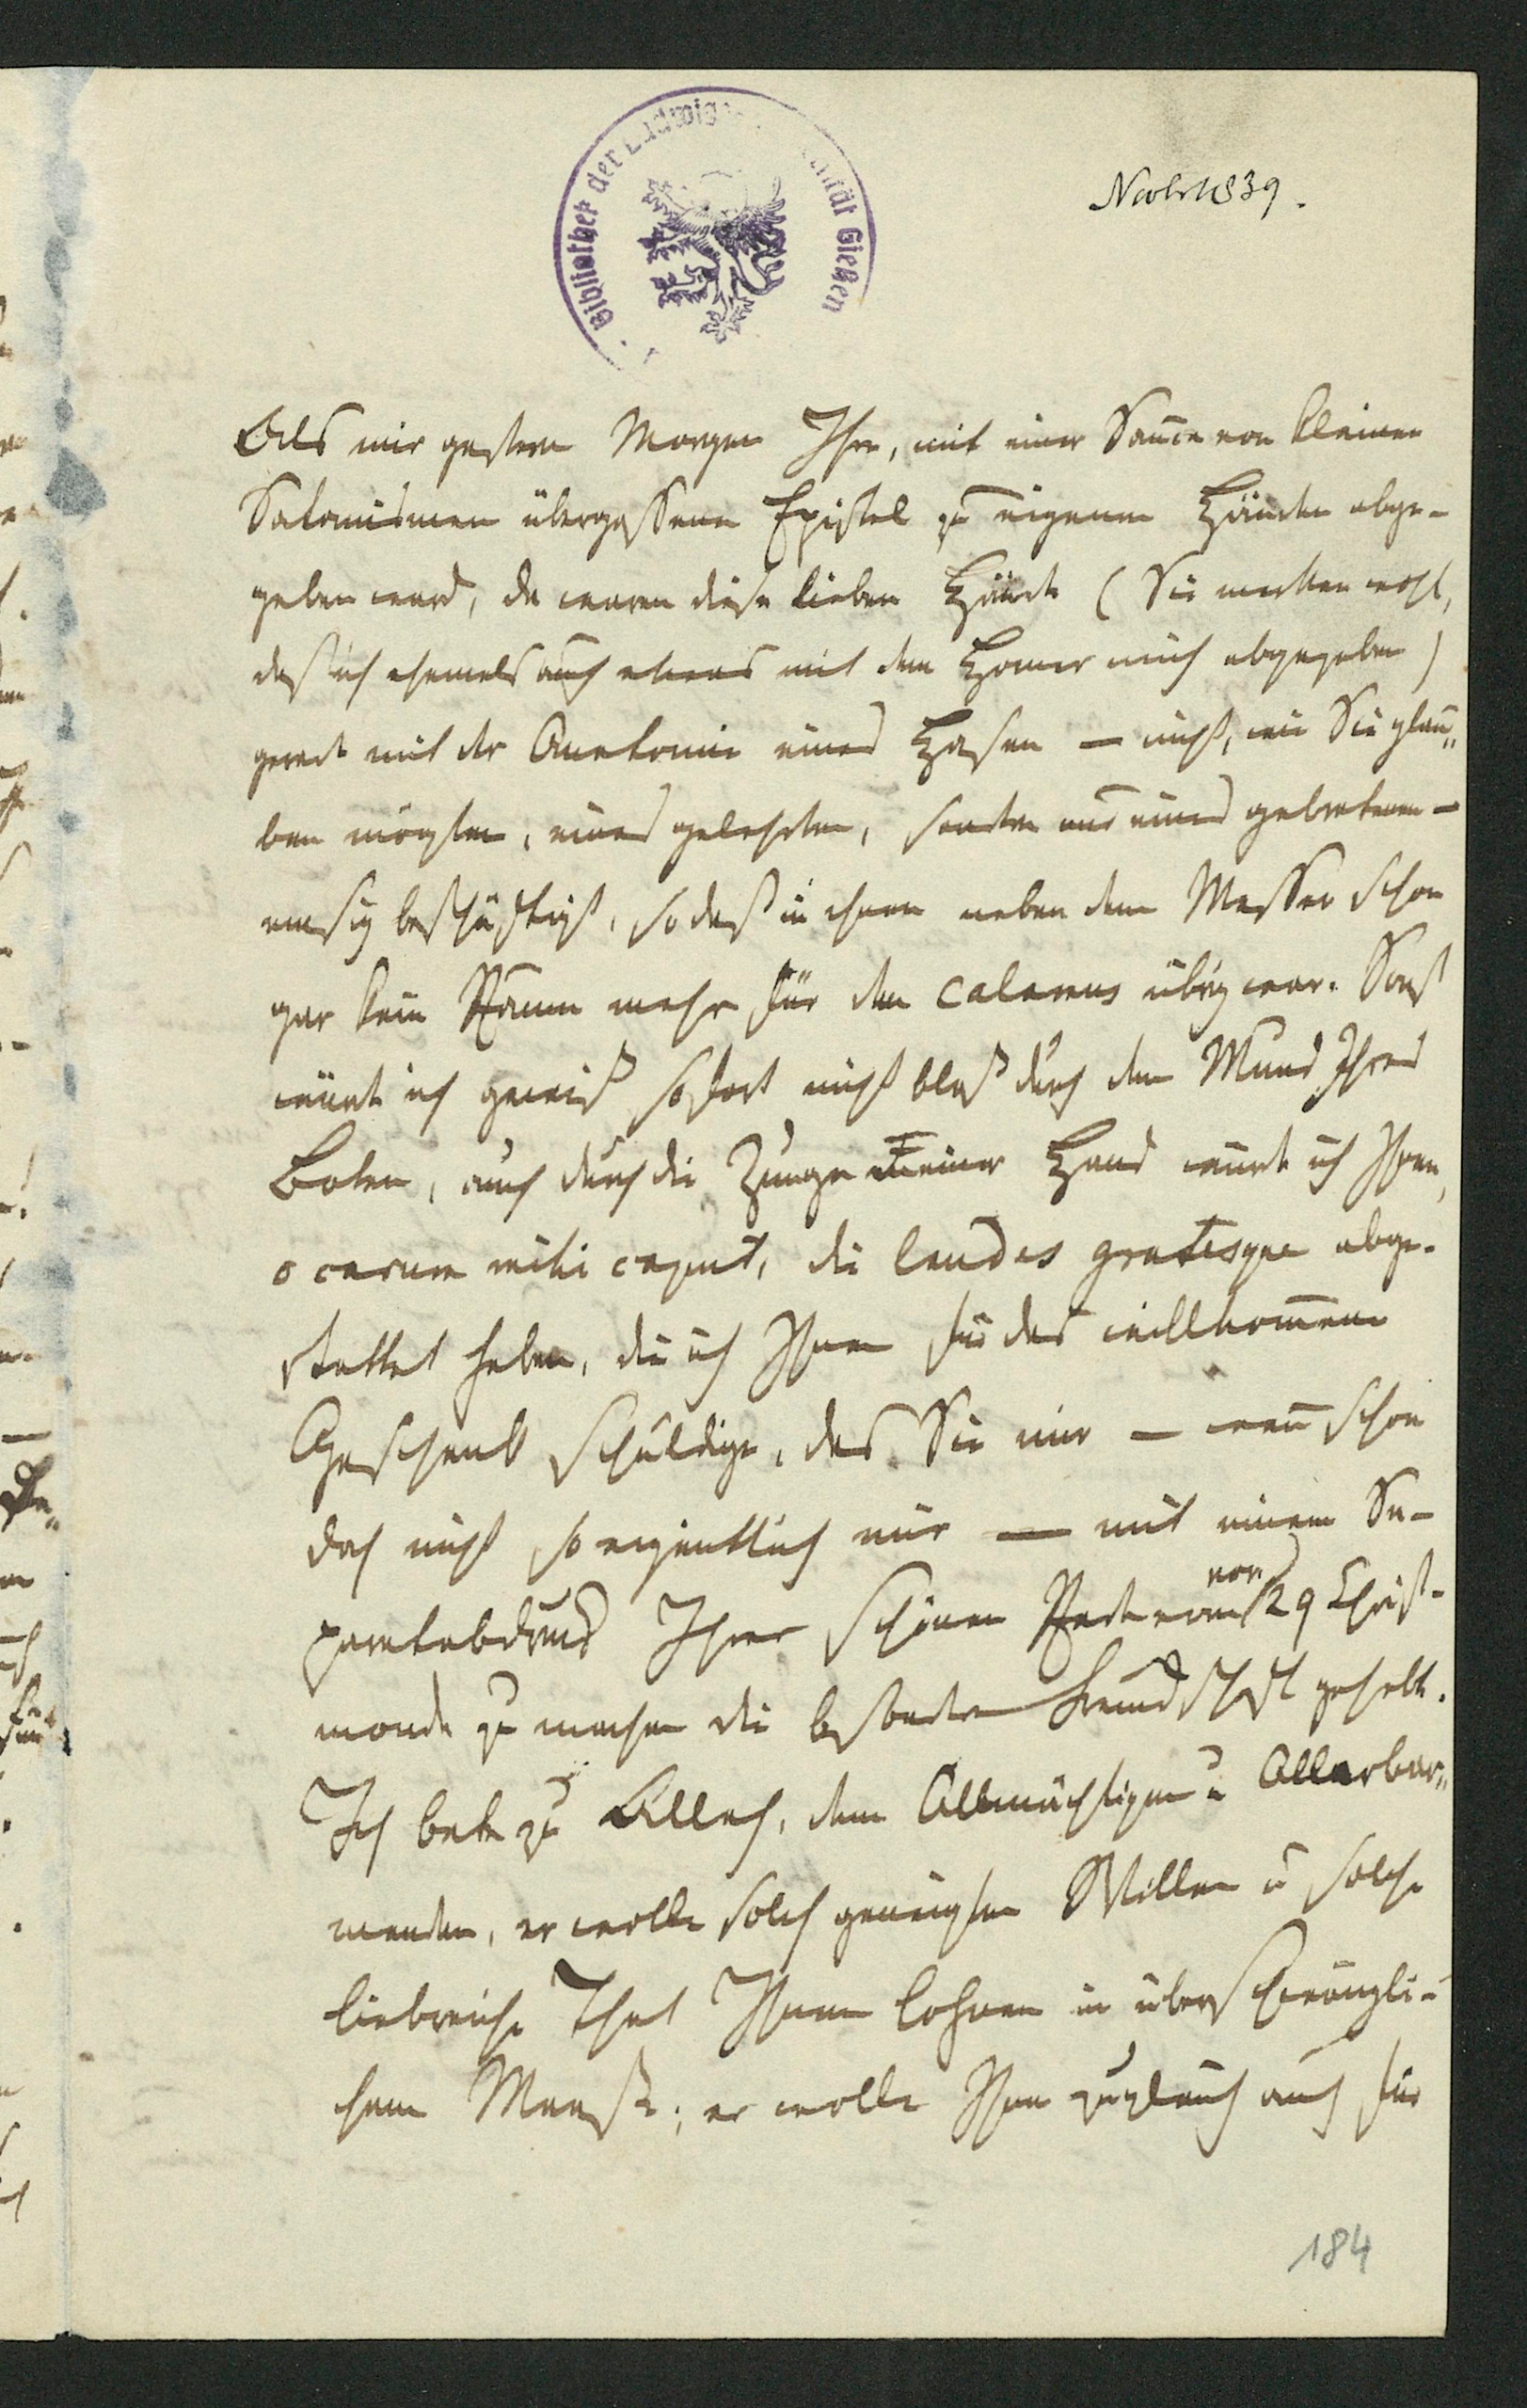 Bibliothek der Ludwigs
ität Gießen
Novbr 1839.
Als mir gestern Morgen Ihre, mit einer Sauce von kleinen
Satanismen übergossene Epistel zu eigenen Händen abge-
geben ward, da waren diese lieben Hände (Sie merken wohl,
daß ich ehemals auch etwas mit dem Homer mich abgegeben)
gerade mit der Anatomie eines Hasen — nicht, wie Sie glau-
ben mögten, eines gelehrten, sondern nur eines gebratenen —
emsig beschäftigt, so daß in ihnen neben dem Messer schon
gar kein Raum mehr für den calamus übrig war. Sonst
würde ich gewiß sofort nicht blos durch den Mund Ihres
Boten, auch durch die Zunge meiner Hand würde ich Ihnen,
o carum mihi caput, die laudes gratesque abge-
stattet haben, die ich Ihnen für das willkommene
Geschenk schuldige, das Sie mir — wenn schon
doch nicht so eigentlich mir — mit einem Se-
paratabdruck Ihrer schönen Rede vom 29 Christ-
monde zu machen die besondere Freundschaft gehabt.
Ich bete zu Allah, dem Allmächtigen u Allerbar-
menden, er wolle solch geneigten Willen u solch
liebreiche That Ihnen lohnen in überschwängli-
chem Maaße; er wolle Ihnen zugleich auch für
184